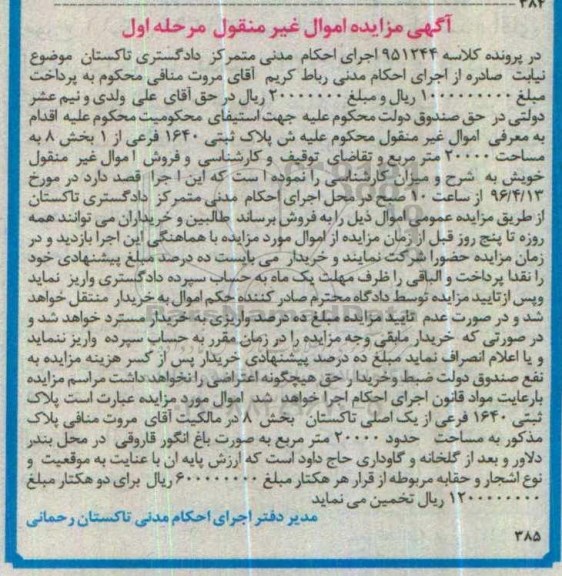 ۳۸۴
آگهی مزایده اموال غیر منقول مرحله اول
در پرونده کلاسه ۹۵۱۲۴۴ اجرای احکام مدنی متمرکز دادگستری تاکستان موضوع
نیابت صادره از اجرای احکام مدنی رباط کریم آقای مروت منافی محکوم به پرداخت
مبلغ ۱۰۰۰۰۰۰۰۰۰۰ ریال و مبلغ ۲۰۰۰۰۰۰۰ ریال در حق آقای علی ولدی و نیم عشر
دولتی در حق صندوق دولت محکوم علیه جهت استیفای محکومیت محکوم علیه اقدام
به معرفی اموال غیر منقول محکوم علیه ش پلاک ثبتی ۱۶۴۰ فرعی از ۱ بخش ۸ به
مساحت ۲۰۰۰۰ متر مربع و تقاضای توقیف و کارشناسی و فروش اموال غیر منقول
خویش به شرح و میزان کارشناسی را نموده است که این اجرا قصد دارد در مورخ
۹۶/۴/۱۳ از ساعت ۱۰ صبح در محل اجرای احکام مدنی متمرکز دادگستری تاکستان
از طریق مزایده عمومی اموال ذیل را به فروش برساند طالبین و خریداران می توانند همه
روزه تا پنج روز قبل از زمان مزایده از اموال مورد مزایده با هماهنگی این اجرا بازدید و در
زمان مزایده حضورا شرکت نمایند و خریدار می بایست ده درصد مبلغ پیشنهادی خود
را نقدا پرداخت و الباقی را ظرف مهلت یک ماه به حساب سپرده دادگستری واریز نماید
وپس ازتایید مزایده توسط دادگاه محترم صادر کننده حکم اموال به خریدار منتقل خواهد
شد و در صورت عدم تایید مزایده مبلغ ده درصد واریزی به خریدار مسترد خواهد شد و
در صورتی که خریدار مابقی وجه مزایده را در زمان مقرر به حساب سپرده واریز ننماید
و یا اعلام انصراف نماید مبلغ ده درصد پیشنهادی خریدار پس از کسر هزینه مزایده به
نفع صندوق دولت ضبط وخریدار حق هیچگونه اعتراضی رانخواهد داشت مراسم مزایده
بارعایت مواد قانون اجرای احکام اجرا خواهد شد اموال مورد مزایده عبارت است پلاک
ثبتی ۱۶۴۰ فرعی از یک اصلی تاکستان بخش ۸ در مالکیت آقای مروت منافی پلاک
مذکور به مساحت حدود ۲۰۰۰۰ متر مربع به صورت باغ انگور قاروقی در محل بندر
دلاور و بعد از گلخانه و گاوداری حاج داود است که ارزش پایه ان با عنایت به موقعیت و
نوع اشجار و حقابه مربوطه از قرار هر هکتار مبلغ ۶۰۰۰۰۰۰۰۰ ریال برای دو هکتار مبلغ
۱۲۰۰۰۰۰۰۰۰ ریال تخمین می نماید
مدیر دفتر اجرای احکام مدنی تاکستان رحمانی
۳۸۵